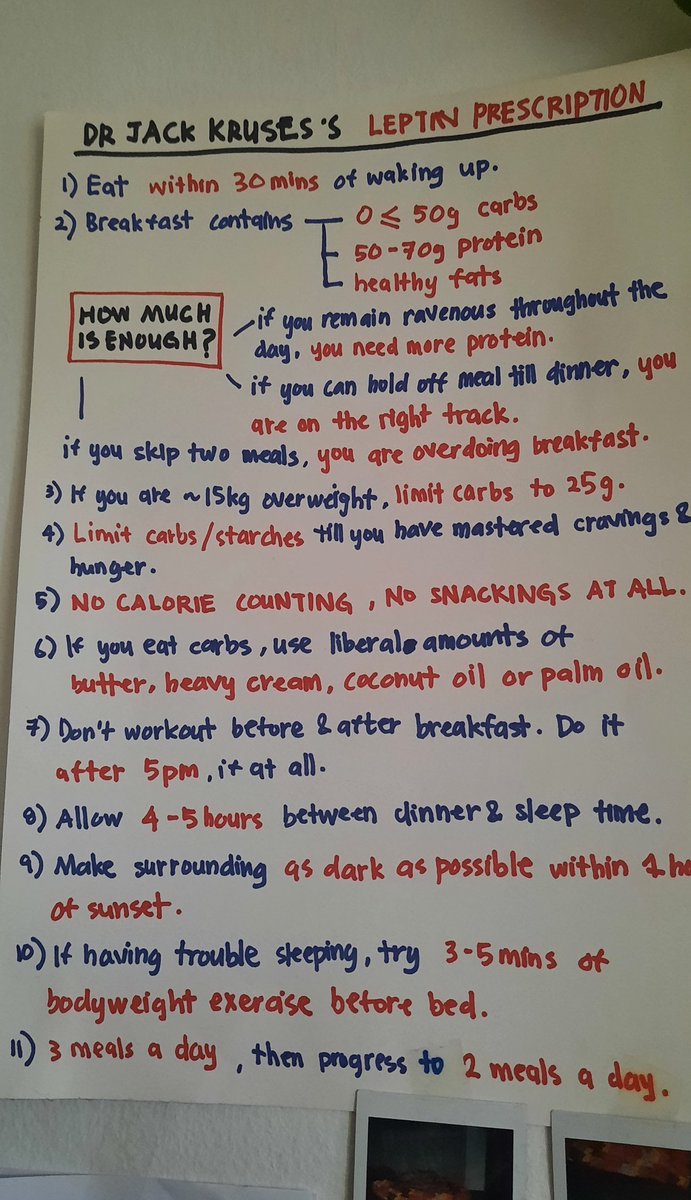 DR JACK KRUSES'S LEPTIN PRESCRIPTION
1) Eat within 30mins of waking up.
2) Breakfast contains
0 ≤ 50g carbs
50-70g protein
healthy fats
HOW MUCH
IS ENOUGH?
if you remain ravenous throughout the
day, you need more protein.
if you can hold off meal till dinner, you
are on the right track.
if you skip two meals, you are overdoing breakfast.
3) If you are ~15kg overweight, limit carbs to 25g.
4) Limit carbs/starches till you have mastered cravings &
hunger.
5) NO CALORIE COUNTING, NO SNACKINGS AT ALL.
6) If you eat carbs, use liberal amounts of
butter, heavy cream, coconut oil or palm oil.
7) Don't workout before & after breakfast. Do it
after 5pm, if at all.
8) Allow 4-5 hours between dinner & sleep time.
9) Make surrounding as dark as possible within 1 ho
of sunset.
10) If having trouble sleeping, try 3-5 mins of
bodyweight exercise before bed.
11) 3 meals a day, then progress to 2 meals a day.